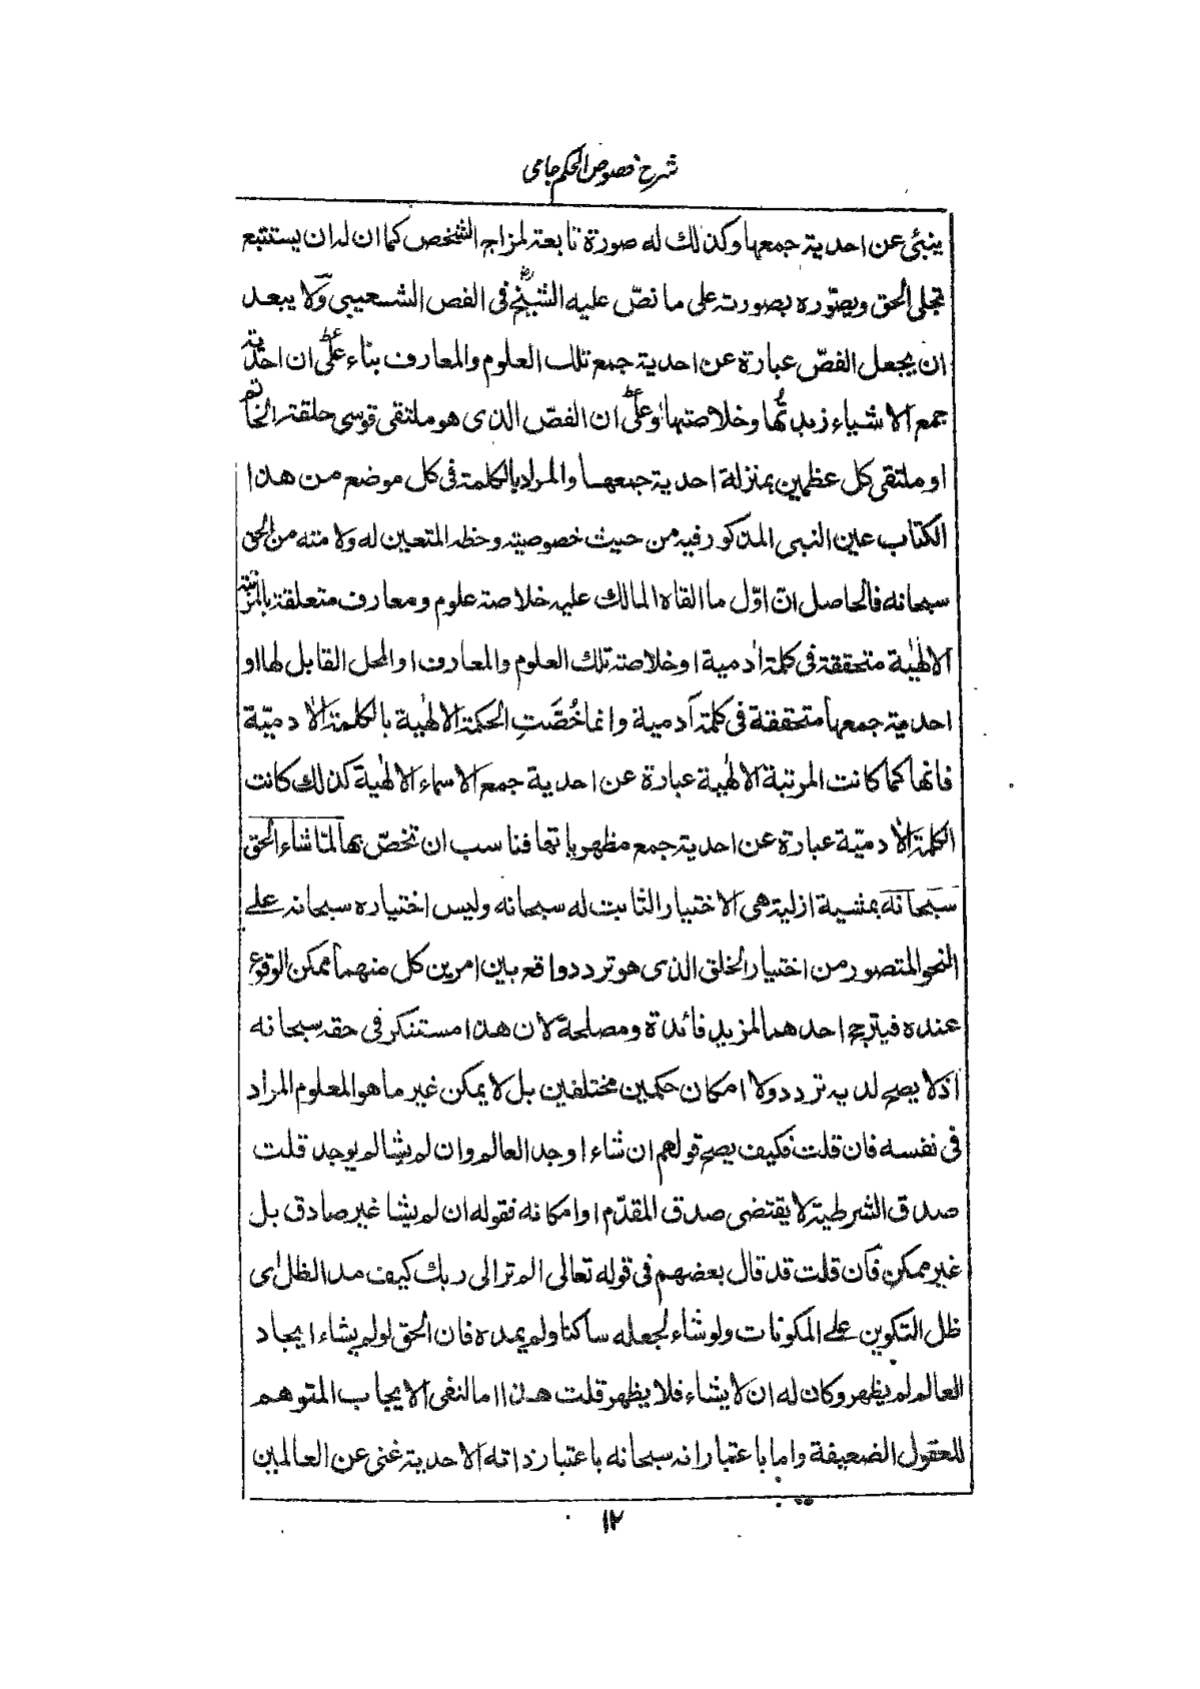 شرح فصوص الحكم جامى
ينبئ عن احدية جمعها وكذلك له صورة تابعة لمزاج الشخص كما ان له ان يستتبع
تجلى الحق ويصوّره بصورته على ما نصّ عليه الشيخ رض فى الفص الشعيبى ولا يبعد
ان يجعل الفصّ عبارة عن احدية جمع تلك العلوم والمعارف بناء على ان احدية
جمع الاشياء زبدتُها وخلاصتها وعلى ان الفصّ الذى هو ملتقى قوسى حلقة الخاتم
او ملتقى كل عظمين بمنزلة احدية جمعها والمراد بالكلمة فى كل موضع من هذا
الكتاب عين النبى المذكور فيه من حيث خصوصيته وحظه المتعين له ولامته من الحق
سبحانه فالحاصل انّ اوّل ما القاه المالك عليه خلاصة علوم ومعارف متعلقة بالمرتبة
الالٰهية متحققة فى كلمة اٰدمية او خلاصة تلك العلوم والمعارف او المحل القابل لها او
احدية جمعها متحققة فى كلمة آدمية وانما خُصَّتِ الحكمة الالٰهية بالكلمة الاٰدميّة
فانها كما كانت المرتبة الالٰهية عبارة عن احدية جمع الاسماء الالٰهية كذلك كانت
الكلمة الاٰدميّة عبارة عن احدية جمع مظهرياتها فناسب ان تخصّ بها لمّا شاء الحق
سبحانه بمشية ازلية هى الاختيار الثابت له سبحانه وليس اختياره سبحانه على
النحو المتصور من اختيار الخلق الذى هو تردد واقع بين امرين كل منهما ممكن الوقوع
عنده فيترجح احدهما لمزيد فائدة ومصلحة لان هذا مستنكر فى حقه سبحانه
اذ لا يصح لديه تردد ولا امكان حكمين مختلفين بل لا يمكن غير ما هو المعلوم المراد
فى نفسه فان قلت فكيف يصح قولهم ان شاء اوجد العالم وان لم يشا لم يوجد قلت
صدق الشرطية لا يقتضى صدق المقدّم او امكانه فقوله ان لم يشا غير صادق بل
غير ممكن فان قلت قد قال بعضهم فى قوله تعالى الم تر الى ربك كيف مد الظل اى
ظل التكوين على المكونات ولو شاء لجعله ساكنا ولم يمده فان الحق لو لم يشاء ايجاد
العالم لم يظهر وكان له ان لا يشاء فلا يظهر قلت هذا اما لنفى الايجاب المتوهم
للعقول الضعيفة واما باعتبار انه سبحانه باعتبار ذاته الاحدية غنى عن العالمين
١٢